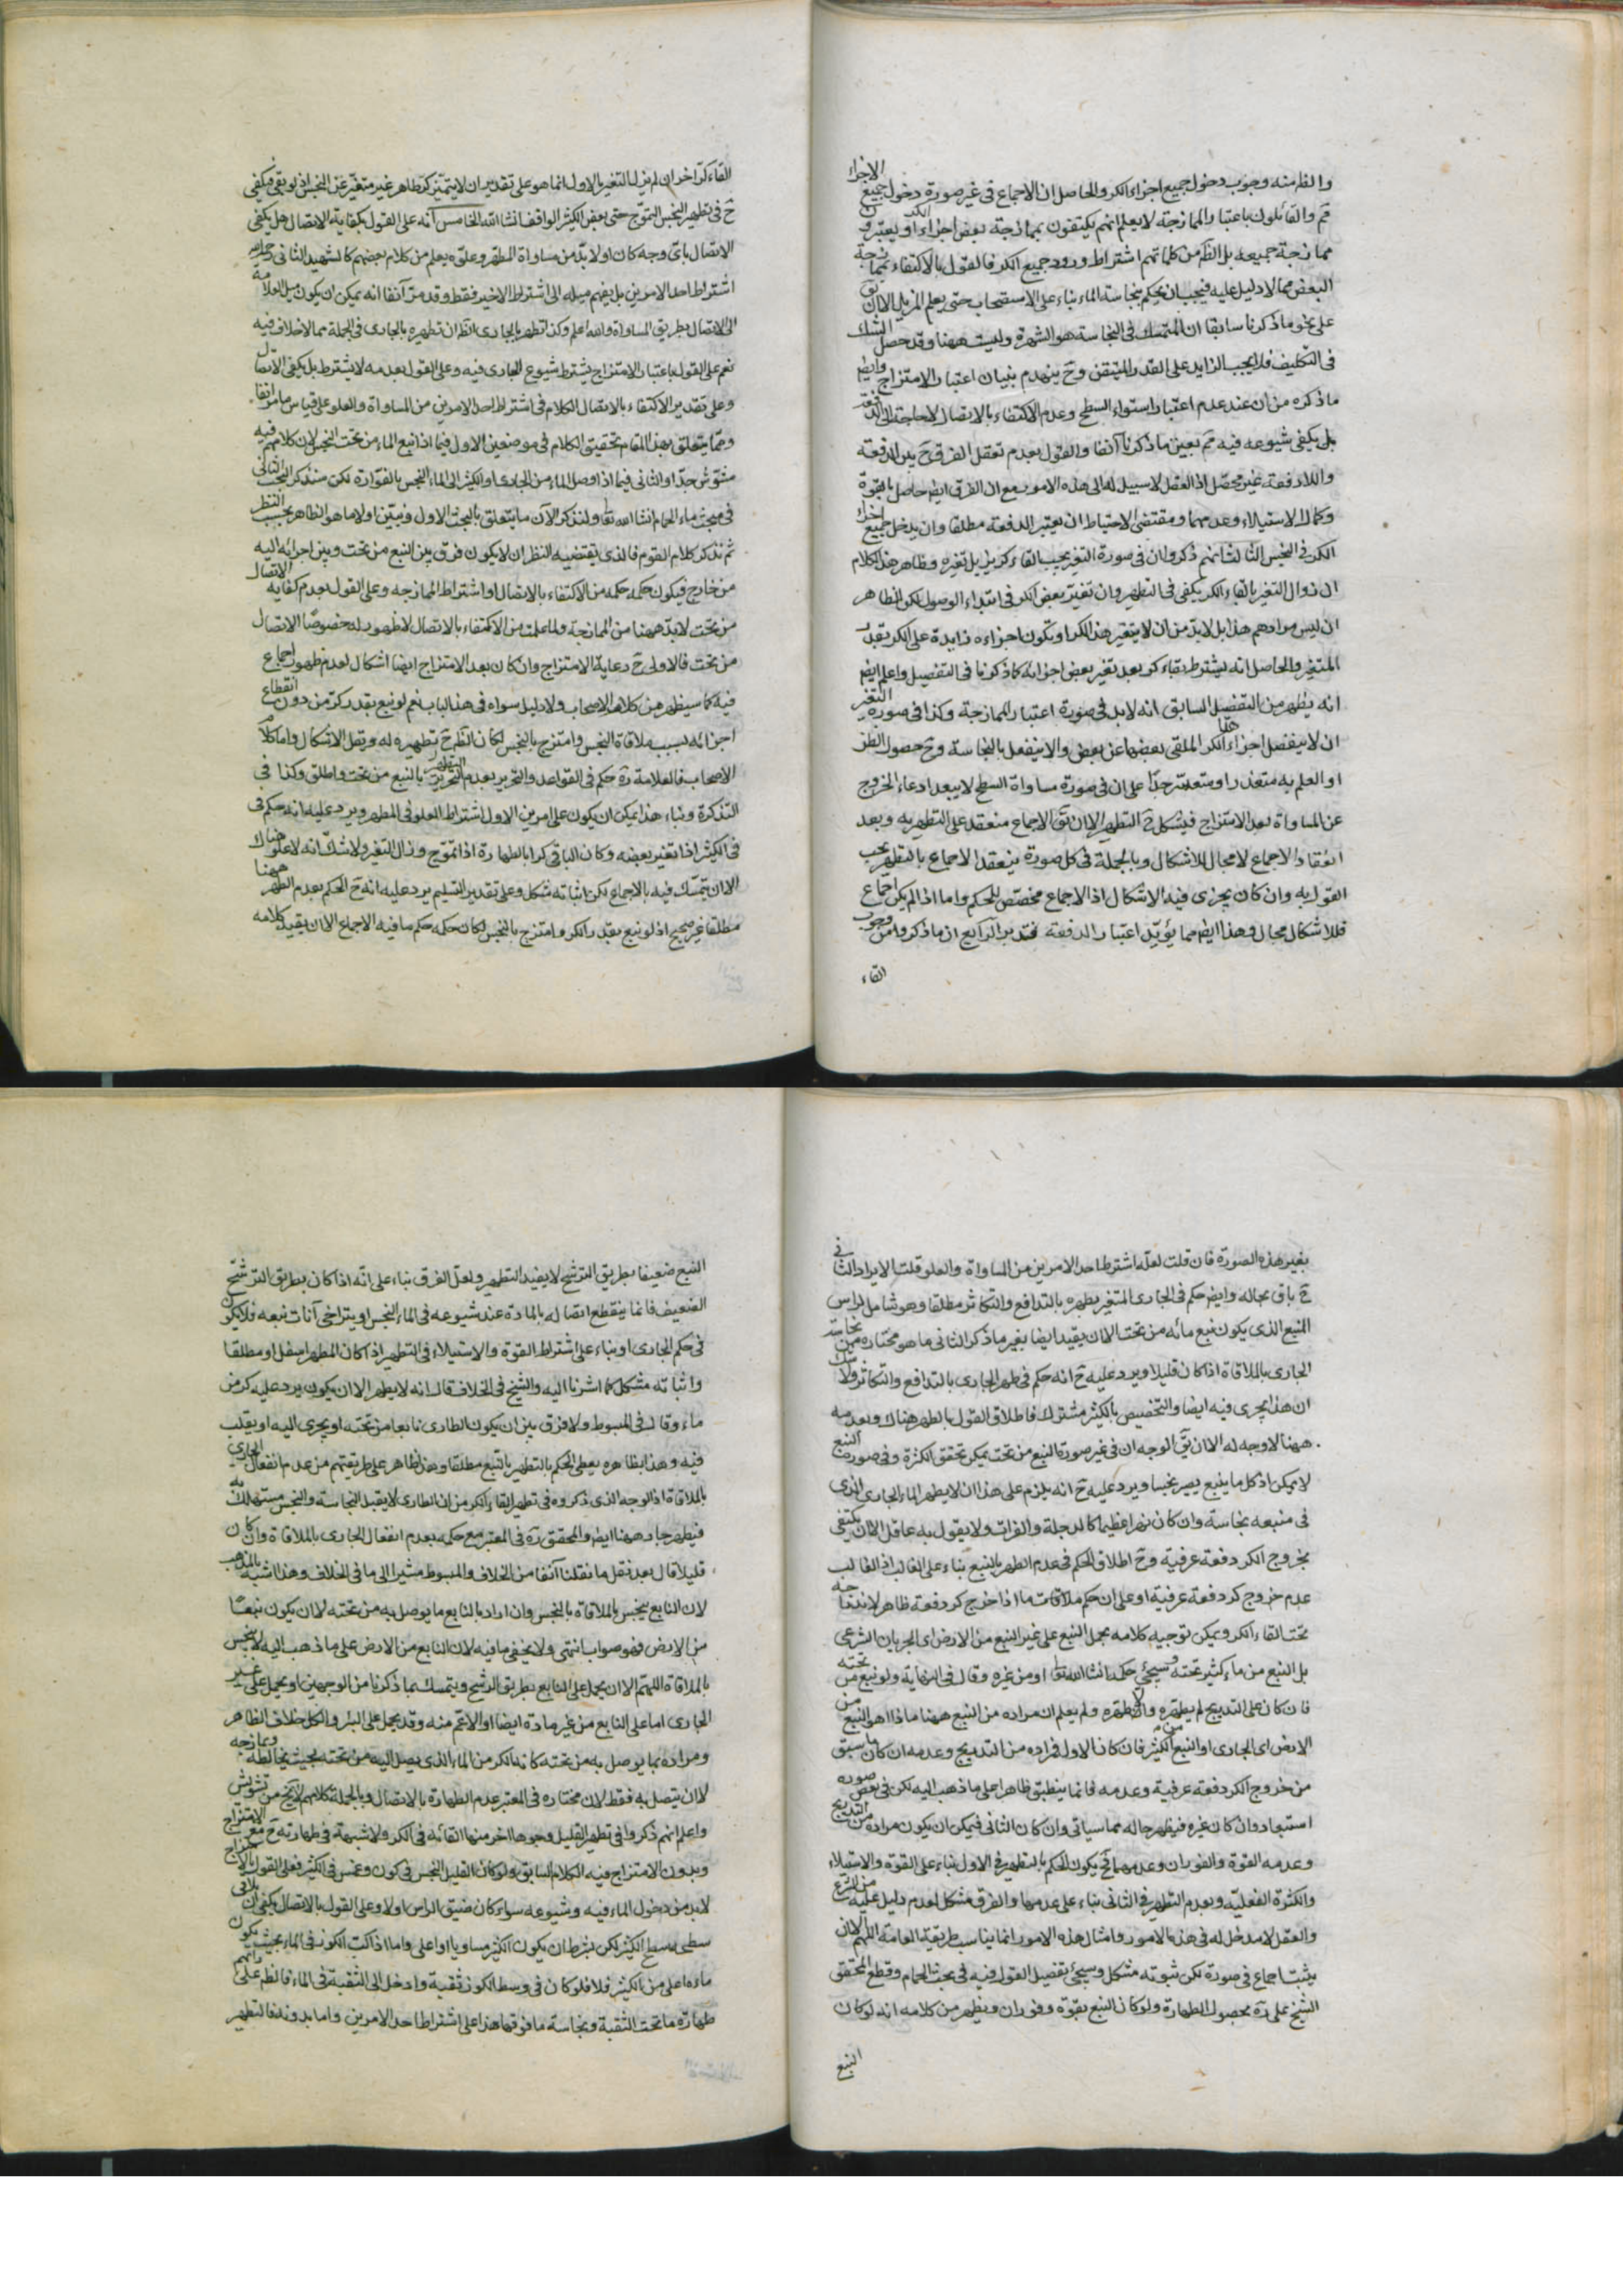 والظ منه وجوب دخول جميع اجزاء الكر والحاصل ان الاجماع فى غير صورة دخول جميع الاجزاء
ثم والقائلون باعتبار الممازجة لا يعلم انهم يكتفون بممازجة بعض اجزاء الكر او يعتبرون
ممازجة جميعه بل الظ من كلماتهم اشتراط ورود جميع الكر فالقول بالاكتفاء بممازجة
البعض مما لا دليل عليه فيجب ان يحكم بنجاسة الماء بناء على الاستصحاب حتى يعلم المزيل الا ان يق
على نحو ما ذكرنا سابقا ان المتمسك فى النجاسة هو الشهرة وليست ههنا وقد حصل الشك
فى التكليف فلا يجب الزايد على القدر المتيقن وح ينهدم بنيان اعتبار الامتزاج وايضا
ما ذكره من ان عند عدم اعتبار استواء السطح وعدم الاكتفاء بالاتصال لا حاجة الى الدفعة
بل يكفى شيوعه فيه ثم بعين ما ذكرنا آنفا والقول بعدم تعقل الفرق ح بين الدفعة
واللادفعة غير محصل اذ العقل لا سبيل له الى هذه الامور مع ان الفرق ايضا حاصل بالقوة
وكمال الاستيلاء وعدمهما ومقتضى الاحتياط ان يعتبر الدفعة مطلقا وان يدخل جميع اجزاء
الكر فى النجس الثالث انهم ذكروا ان فى صورة التغير يجب القاء كر يزيل تغيره وظاهر هذا الكلام
ان زوال التغير بالقاء الكر يكفى فى التطهير وان تغير بعض الكر فى ابتداء الوصول لكن الظاهر
ان ليس مرادهم هذا بل لا بد من ان لا يتغير هذا الكر او يكون اجزاءه زايدة على الكر بقدر
المتغير والحاصل انه يشترط بقاء كر بعد تغير بعض اجزائه كما ذكرنا فى التفصيل واعلم ايضا
انه يظهر من التفصيل السابق انه لا بد فى صورة اعتبار الممازجة وكذا فى صورة التغير
ان لا ينفصل اجزاء هذا الكر الملقى بعضها عن بعض والا ينفعل بالنجاسة وح حصول الظن
او العلم به متعذر او متعسر جدا على ان فى صورة مساواة السطح لا يبعد ادعاء الخروج
عن المساواة بعد الامتزاج فيشكل ح التطهير الا ان يق الاجماع منعقد على التطهر به وبعد
انعقاد الاجماع لا مجال للاشكال وبالجملة فى كل صورة ينعقد الاجماع بالتطهير يجب
القول به وان كان يجرى فيه الاشكال اذ الاجماع مخصص للحكم واما اذا لم يكن اجماع
فللاشكال مجال وهذا ايضا مما يؤيد اعتبار الدفعة فتدبر الرابع ان ما ذكروا من وجوب
القاء
القاء كر آخر ان لم يزل التغير بالاول انما هو على تقدير ان لا يتميز كر طاهر غير متغير عن النجس اذ لو بقى فيكفى
ح فى تطهير النجس التموج حتى بعض الكثير الواقف انشاء الله الخامس انه على القول بكفاية الاتصال هل يكفى
الاتصال باى وجه كان او لا بد من مساواة المطهر وعلوه يعلم من كلام بعضهم كالشهيد الثانى
اشتراط احد الامرين بل يفهم ميله الى اشتراط الاخير فقط وقد مر آنفا انه يمكن ان يكون ميل العلامة
الى الاتصال بطريق المساواة والله اعلم وكذا تطهير الجارى الظ ان تطهيره بالجارى فى الجملة مما لا خلاف فيه
نعم على القول باعتبار الامتزاج يشترط شيوع الجارى فيه وعلى القول بعدمه لا يشترط بل يكفى الاتصال
وعلى تقدير الاكتفاء بالاتصال الكلام فى اشتراط احد الامرين من المساواة والعلو على قياس ما مر آنفا
ومما يتعلق بهذا المقام تحقيق الكلام فى موضعين الاول فيما اذا نبع الماء من تحت النجس لان كلامهم فيه
مشوش جدا والثانى فيما اذا وصل الماء من الجارى او الكثير الى الماء النجس بالفوارة لكن سنذكر البحث الثانى
فى مبحث ماء الحمام انشاء الله تعالى ولنذكر الآن ما يتعلق بالبحث الاول ونبين اولا ما هو الظاهر بحسب النظر
ثم نذكر كلام القوم فالذى يقتضيه النظر ان لا يكون فرق بين النبع من تحت وبين اجرائه اليه
من خارج فيكون حكمه حكمه من الاكتفاء بالاتصال او اشتراط الممازجة وعلى القول بعدم كفاية الاتصال
من تحت لا بد ههنا من الممازجة ولما علمت من الاكتفاء بالاتصال لا ظهور له خصوصا الاتصال
من تحت فالاولى ح رعاية الامتزاج وان كان بعد الامتزاج ايضا اشكال لعدم ظهور اجماع
فيه كما سيظهر من كلام الاصحاب ولا دليل سواه فى هذا الباب نعم لو نبع بقدر كر من دون انقطاع
اجزائه بسبب ملاقاة النجس وامتزج بالنجس لكان الظ ح تطهيره له ويقل الاشكال واما كلام
الاصحاب فالعلامة ره حكم فى القواعد والتحرير بعدم التطهير بالنبع من تحت واطلق وكذا فى
التذكرة وبناء هذا يمكن ان يكون على امرين الاول اشتراط العلو فى المطهر ويرد عليه انه حكم فى
فى الكثير اذا تغير بعضه وكان الباقى كرا بالطهارة اذا تموج وزال التغير ولا شك انه لا علو هناك
الا ان يتمسك فيه بالاجماع لكن اثباته مشكل وعلى تقدير التسليم يرد عليه انه ح الحكم بعدم الطهر ههنا
مطلقا غير صحيح اذ لو نبع بقدر الكر وامتزج بالنجس لكان حكمه حكم ما فيه الاجماع الا ان يقيد كلامه
بغير هذه الصورة فان قلت لعله اشترط احد الامرين من المساواة والعلو قلت الايراد الثانى
ح باق بحاله وايضا حكم فى الجارى المتغير بطهره بالتدافع والتكاثر مطلقا وهو شامل لراس
المنبع الذى يكون نبع مائه من تحت الا ان يقيد ايضا بغير ما ذكر الثانى ما هو مختاره من نجاسة
الجارى بالملاقاة اذا كان قليلا ويرد عليه ح انه حكم فى طهر الجارى بالتدافع والتكاثر ولا شك
ان هذا يجرى فيه ايضا والتخصيص بالكثير مشترك فاطلاق القول بالطهر هناك وبعدمه
ههنا لا وجه له الا ان يق الوجه ان فى غير صورة النبع من تحت يمكن تحقق الكثرة وفى صورة النبع
لا يمكن اذ كل ما ينبع يصير نجسا ويرد عليه ح انه يلزم على هذا ان لا يطهر الماء الجارى الذى
فى منبعه نجاسة وان كان نهرا عظيما كالدجلة والفرات ولا يقول به عاقل الا ان يكتفى
بخروج الكر دفعة عرفية وح اطلاق الحكم فى عدم الطهر بالنبع بناء على الغالب اذ الغالب
عدم خروج كر دفعة عرفية او على ان حكم ملاقات ما اذا خرج كر دفعة ظاهر لاندراجه
تحت القاء الكر ويمكن توجيه كلامه بحمل النبع على غير النبع من الارض اى الجريان الشرعى
بل النبع من ماء كثير تحته وسيجئ حكمه انشاء الله تعالى او من غيره وقال فى النهاية ولو نبع من تحته
فان كان على التدريج لم يطهره والا طهره ولم يعلم ان مراده من النبع ههنا ماذا اهو النبع من
الارض اى الجارى او النبع من الكثير فان كان الاول فمراده من التدريج وعدمه ان كان ما سبق
من خروج الكر دفعة عرفية وعدمه فانما ينطبق ظاهرا على ما ذهب اليه لكن فى بعض صوره
استبعاد وان كان غيره فيظهر حاله مما سياتى وان كان الثانى فيمكن ان يكون مراده من التدريج
وعدمه القوة والفوران وعدمهما فح يكون الحكم بالتطهير فى الاول بناء على القوة والاستيلاء
والكثرة الفعلية وبعدم التطهير فى الثانى بناء على عدمها والفرق مشكل لعدم دليل عليه من الشرع
والعقل لا مدخل له فى هذه الامور وامثال هذه الامور انما يناسب طريقة العامة اللهم الا ان
يثبت اجماع فى صورة لكن ثبوته مشكل وسيجئ تفصيل القول فيه فى بحث الحمام وقطع المحقق
الشيخ على ره بحصول الطهارة ولو كان النبع بقوة وفوران ويظهر من كلامه انه لو كان
النبع
النبع ضعيفا بطريق الترشح لا يفيد التطهير ولعل الفرق بناء على انه اذا كان بطريق الترشح
الضعيف فانما ينقطع اتصاله بالمادة عند شيوعه فى الماء النجس او يتراخى آنات نبعه فلا يكون
فى حكم الجارى او بناء على اشتراط القوة والاستيلاء فى التطهير اذا كان المطهر اسفل او مطلقا
واثباته مشكل كما اشرنا اليه والشيخ فى الخلاف قال انه لا يطهر الا ان يكون يرد عليه كر من
ماء وقال فى المبسوط ولا فرق بين ان يكون الطارى نابعا من تحته او يجرى اليه او يقلب
فيه وهذا بظاهره يعطى الحكم بالتطهير بالنبع مطلقا وهذا الظاهر على طريقتهم من عدم انفعال الجارى
بالملاقاة اذ الوجه الذى ذكروه فى تطهير القاء الكر من ان الطارى لا يقبل النجاسة والنجس مستهلك به
فيطهر جار ههنا ايضا والمحقق ره فى المعتبر مع حكمه بعدم انفعال الجارى بالملاقاة وان كان
قليلا قال بعد نقل ما نقلنا آنفا من الخلاف والمبسوط مشيرا الى ما فى الخلاف وهذا اشبه بالمذهب
لان النابع ينجس بالملاقاة بالنجس وان اراد بالنابع ما يوصل به من تحته لا ان يكون نبعا
من الارض فهو صواب انتهى ولا يخفى ما فيه لان النابع من الارض على ما ذهب اليه لا ينجس
بالملاقاة اللهم الا ان يحمل على النابع بطريق الرشح ويتمسك بما ذكرنا من الوجهين او يحمل على غير
الجارى اما على النابع من غير مادة ايضا او الاعم منه وقد يحمل على البئر والكل خلاف الظاهر
ومراده بما يوصل به من تحته كانه الكر من الماء الذى يصل اليه من تحته بحيث يخالطه ويمازجه
لا ان يتصل به فقط لان مختاره فى المعتبر عدم الطهارة بالاتصال وبالجملة كلامهم لا يخ من تشويش
واعلم انهم ذكروا فى تطهير القليل وجوها اخر منها القائه فى الكر ولا شبهة فى طهارته ح مع الامتزاج
وبدون الامتزاج فيه الكلام السابق ولو كان القليل النجس فى كوز وغمس فى الكثير فعلى القول بالامتزاج
لا بد من دخول الماء فيه وشيوعه سواء كان ضيق الراس اولا وعلى القول بالاتصال يكفى ان يلاقى
سطحه سطح الكثير لكن بشرط ان يكون الكثير مساويا او اعلى واما اذا كبت الكوز فى الماء بحيث يكون
ماءه اعلى من الكثير فلا فلو كان فى وسط الكوز ثقبة وادخل الى الثقبة فى الماء فالظ على رايهم
طهارة ما تحت الثقبة ونجاسة ما فوقها هذا على اشتراط احد الامرين واما بدونه فالتطهير